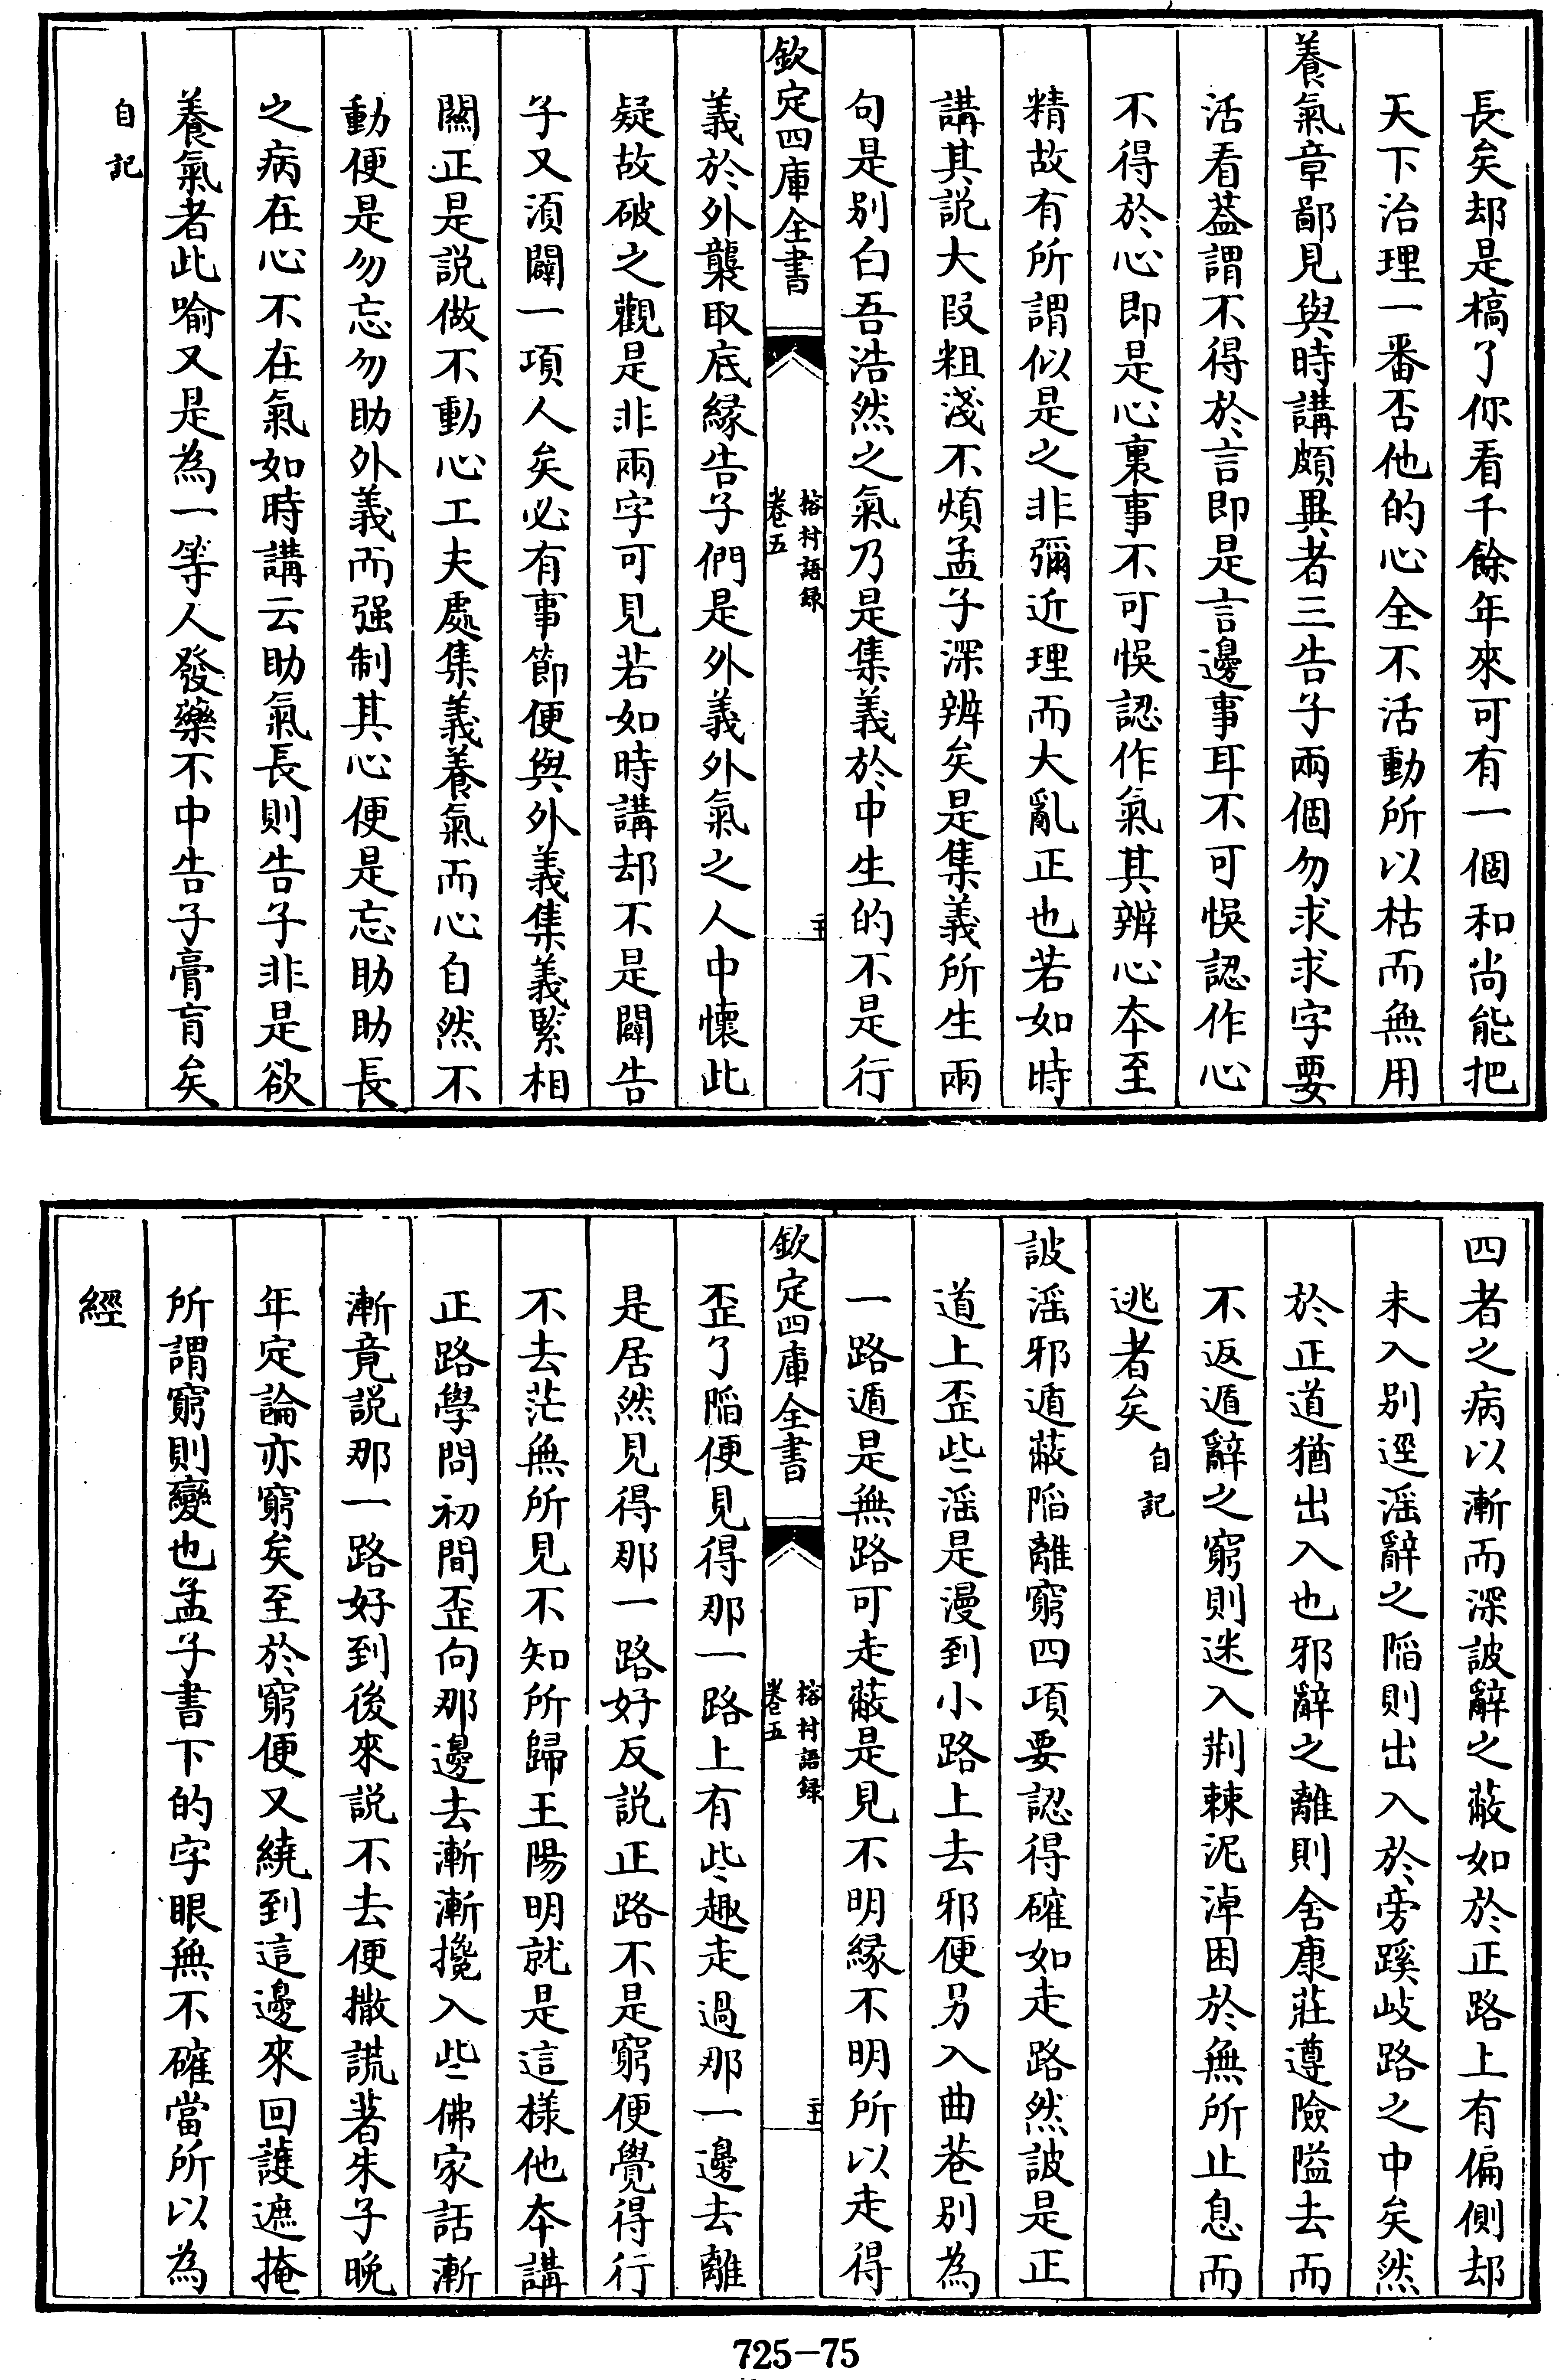 長矣却是槁了你看千餘年來可有一個和尚能把
天下治理一番否他的心全不活動所以枯而無用
養氣章鄙見與時講頗異者三告子兩個勿求求字要
活看葢謂不得於言即是言邊事耳不可悞認作心
不得於心即是心裏事不可悞認作氣其辨心本至
精故有所謂似是之非彌近理而大亂正也若如時
講其説大段粗淺不煩孟子深辨矣是集義所生兩
句是别白吾浩然之氣乃是集義於中生的不是行
欽定四庫全書
榕村語録
卷五
義於外襲取底緣告子們是外義外氣之人中懷此
疑故破之觀是非兩字可見若如時講却不是闢告
子又須闢一項人矣必有事節便與外義集義緊相
關正是説做不動心工夫處集義養氣而心自然不
動便是勿忘勿助外義而强制其心便是忘助助長
之病在心不在氣如時講云助氣長則告子非是欲
養氣者此喻又是為一等人發藥不中告子膏肓矣
自記
四者之病以漸而深詖辭之蔽如於正路上有偏側却
未入别逕滛辭之陷則出入於旁蹊岐路之中矣然
於正道猶出入也邪辭之離則舍康莊遵險隘去而
不返遁辭之窮則迷入荆棘泥淖困於無所止息而
逃者矣自記
詖滛邪遁蔽陷離窮四項要認得確如走路然詖是正
道上歪些滛是漫到小路上去邪便另入曲巷别為
一路遁是無路可走蔽是見不明緣不明所以走得
欽定四庫全書
榕村語録
卷五
歪了陷便見得那一路上有些趣走過那一邊去離
是居然見得那一路好反説正路不是窮便覺得行
不去茫無所見不知所歸王陽明就是這樣他本講
正路學問初間歪向那邊去漸漸攙入些佛家話漸
漸竟説那一路好到後來説不去便撒謊著朱子晚
年定論亦窮矣至於窮便又繞到這邊來回護遮掩
所謂窮則變也孟子書下的字眼無不確當所以為
經
725-75